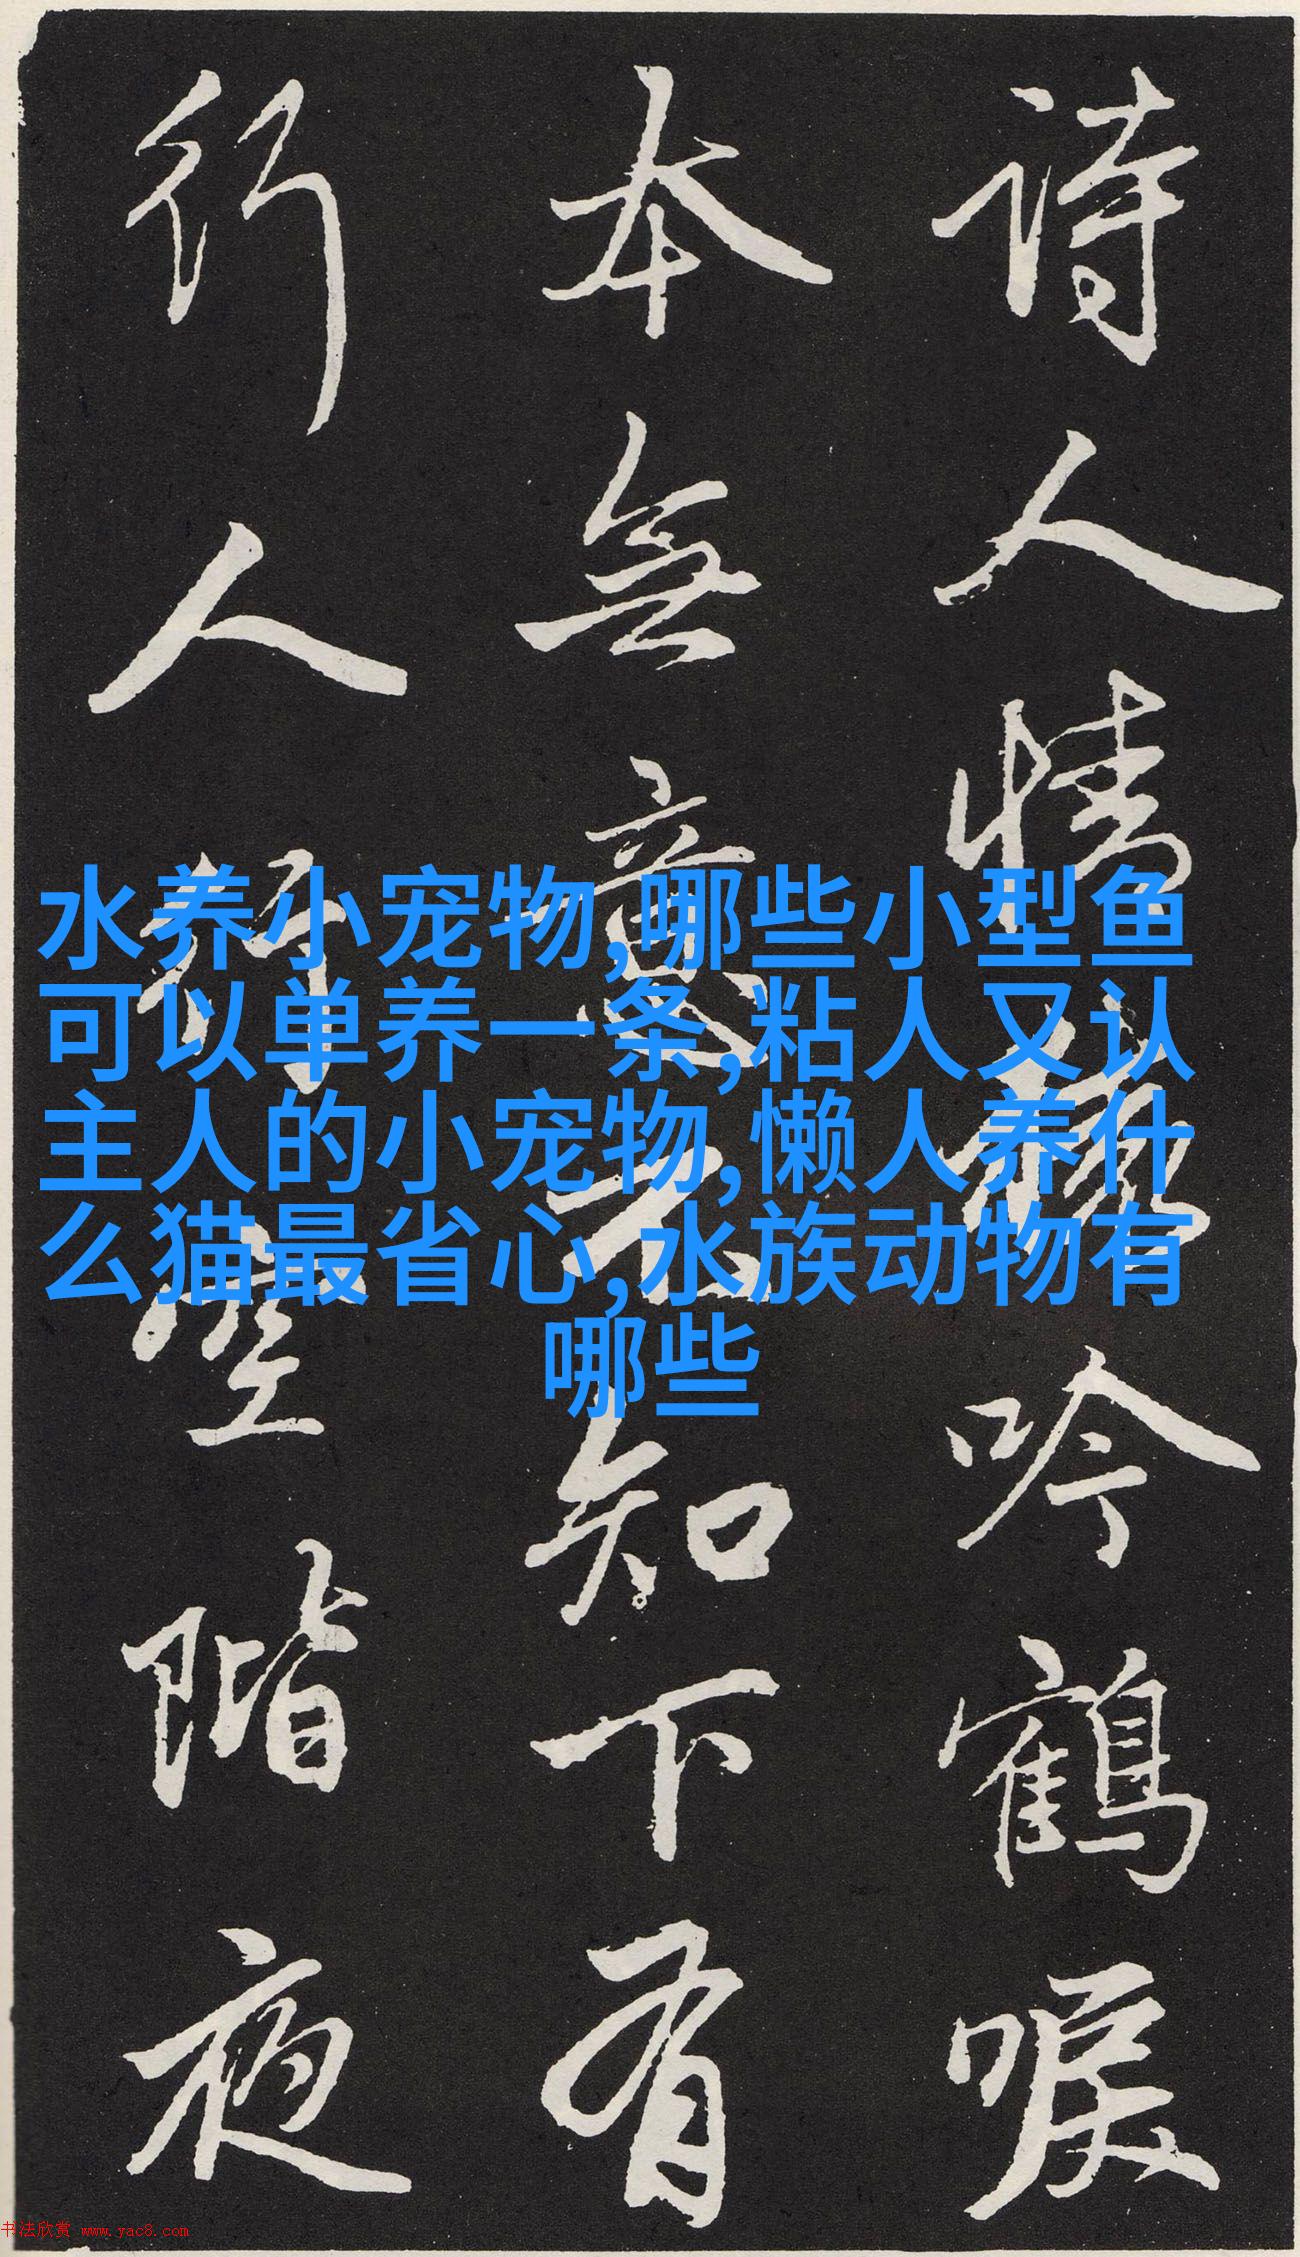 詩人情吟鶴唳
本無意知下有
行人空階夜
水养小宠物,哪些小型鱼
可以单养一条,粘人又认
主人的小宠物,懒人养什
么猫最省心,水族动物有
哪些
书法欣赏 www.yac8.com